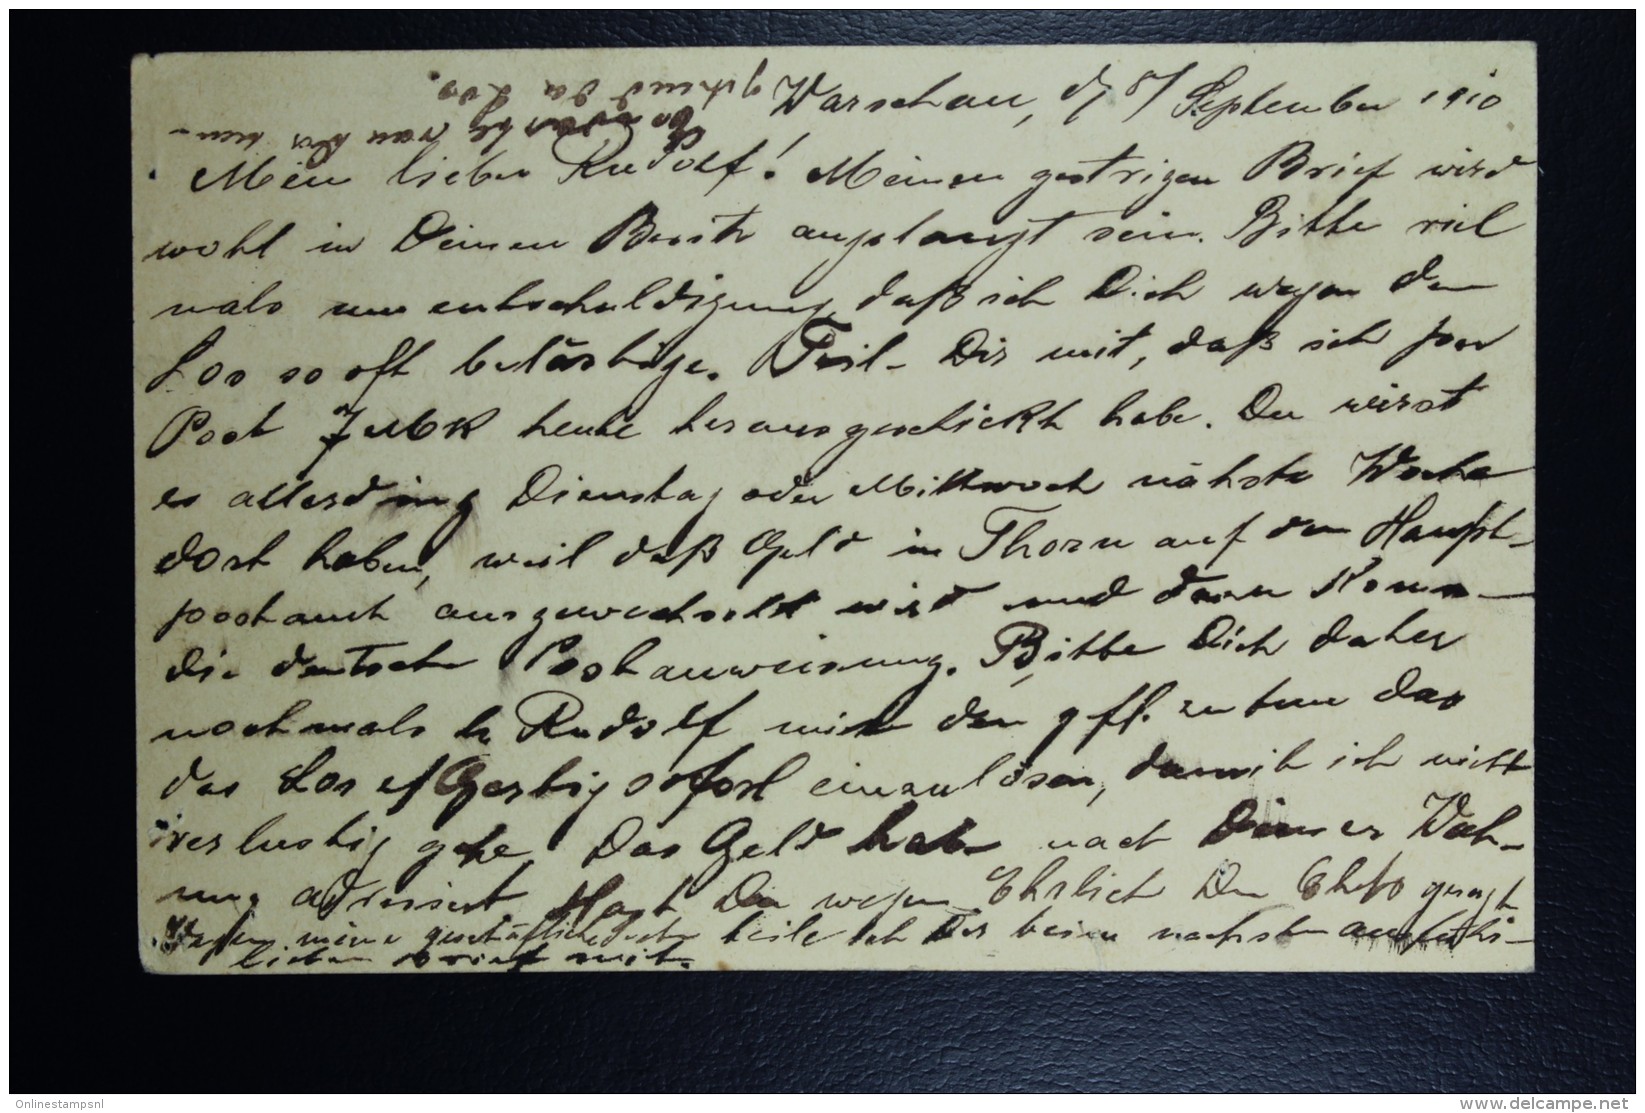 Warschau, d/ 8/ September 1910
Mein lieber Rudolf! Meinen gestrigen Brief wird
wohl in Deinen Besitz angelangt sein. Bitte viel
mals um entschuldigung, daß ich Dich wegen den
Los so oft belästige. Teil- Dir mit, daß ich per
Post heute herausgeschickt habe. Du wirst
es allerding Dienstag oder Mittwoch nähste Woche
dort haben, weil daß Geld in Thorn auf den Haupt-
postamt ausgewechselt wird und dann
die deutsche Postanweisung. Bitte Dich daher
nochmals l. Rudolf mir den gfl. zu tun das
das Los sofort einzulösen, damit ich nicht
verlustig gehe. Das Geld habe nach Deiner Woh-
nung adressiert Hast Du wegen Ehrlich Den gesagt
Wegen meine geschäftliche teile ich Dir beim nächsten ausführ-
lichen Brief mit.
Onlinestampsnl
www.delcampe.net